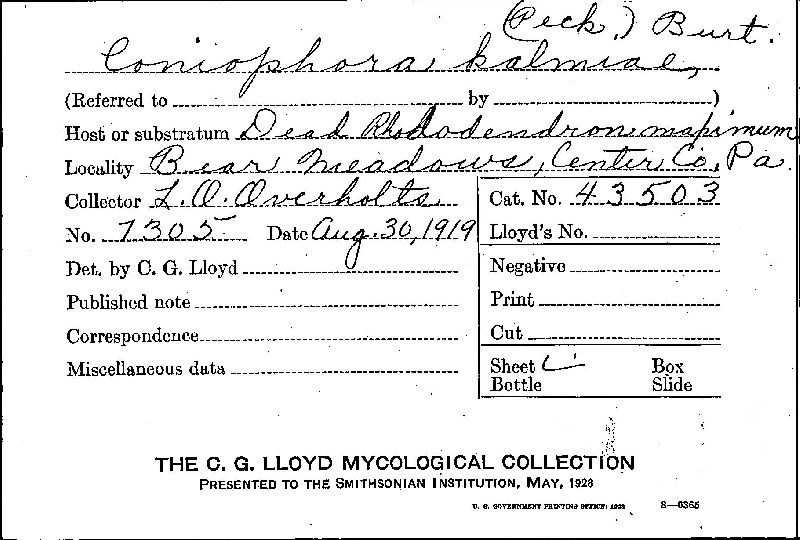 (Peck.) Burt.
Coniophora kalmiae,
(Referred to by )
Host or substratum Dead Rhododendron maximum
Locality Bear Meadows, Center Co, Pa.
Collector L.O. Overholts Cat. No. 43503
No. 7305 Date Aug. 30, 1919 Lloyd's No.
Det. by C. G. Lloyd Negative
Published note Print
Correspondence Cut
Miscellaneous data Sheet Box
Bottle Slide
THE C. G. LLOYD MYCOLOGICAL COLLECTION
PRESENTED TO THE SMITHSONIAN INSTITUTION, MAY, 1928
U. S. GOVERNMENT PRINTING OFFICE: 1928 8—6366